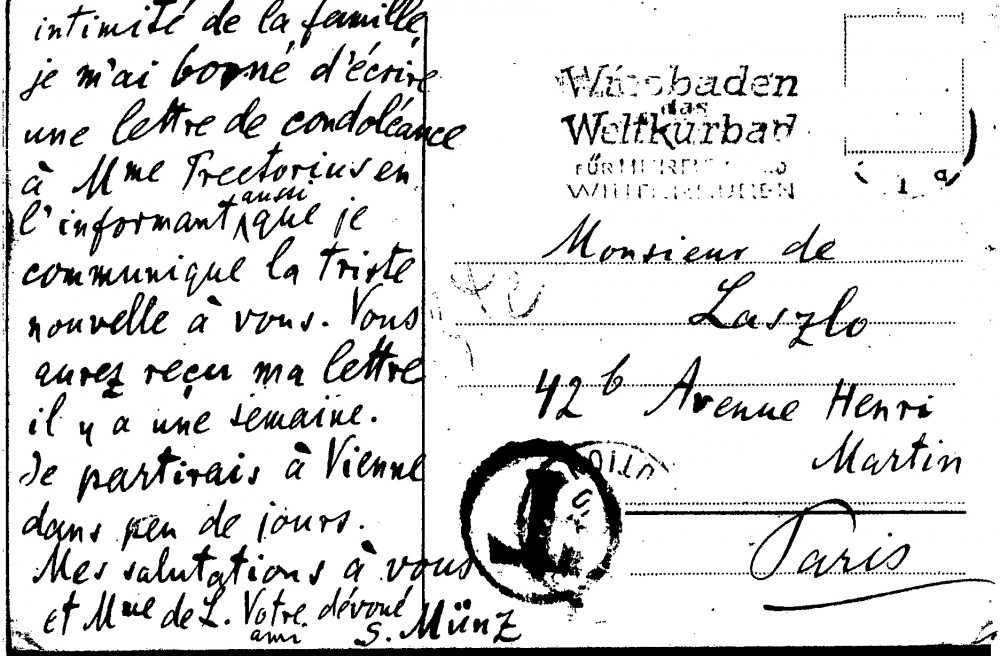 intimité de la famille,
je m'ai borné d'écrire
une lettre de condoléance
à Mme Preetorius en
l'informant aussi que je
communique la triste
nouvelle à vous. Vous
aurez reçu ma lettre
il y a une semaine.
Je partirais à Vienne
dans peu de jours.
Mes salutations à vous
et Mme de L. Votre dévoué
ami S. Münz
Wiesbaden
das
Weltkurbad
FÜR
WINTERKUREN
Monsieur de
Laszlo
42 b Avenue Henri
Martin
Paris